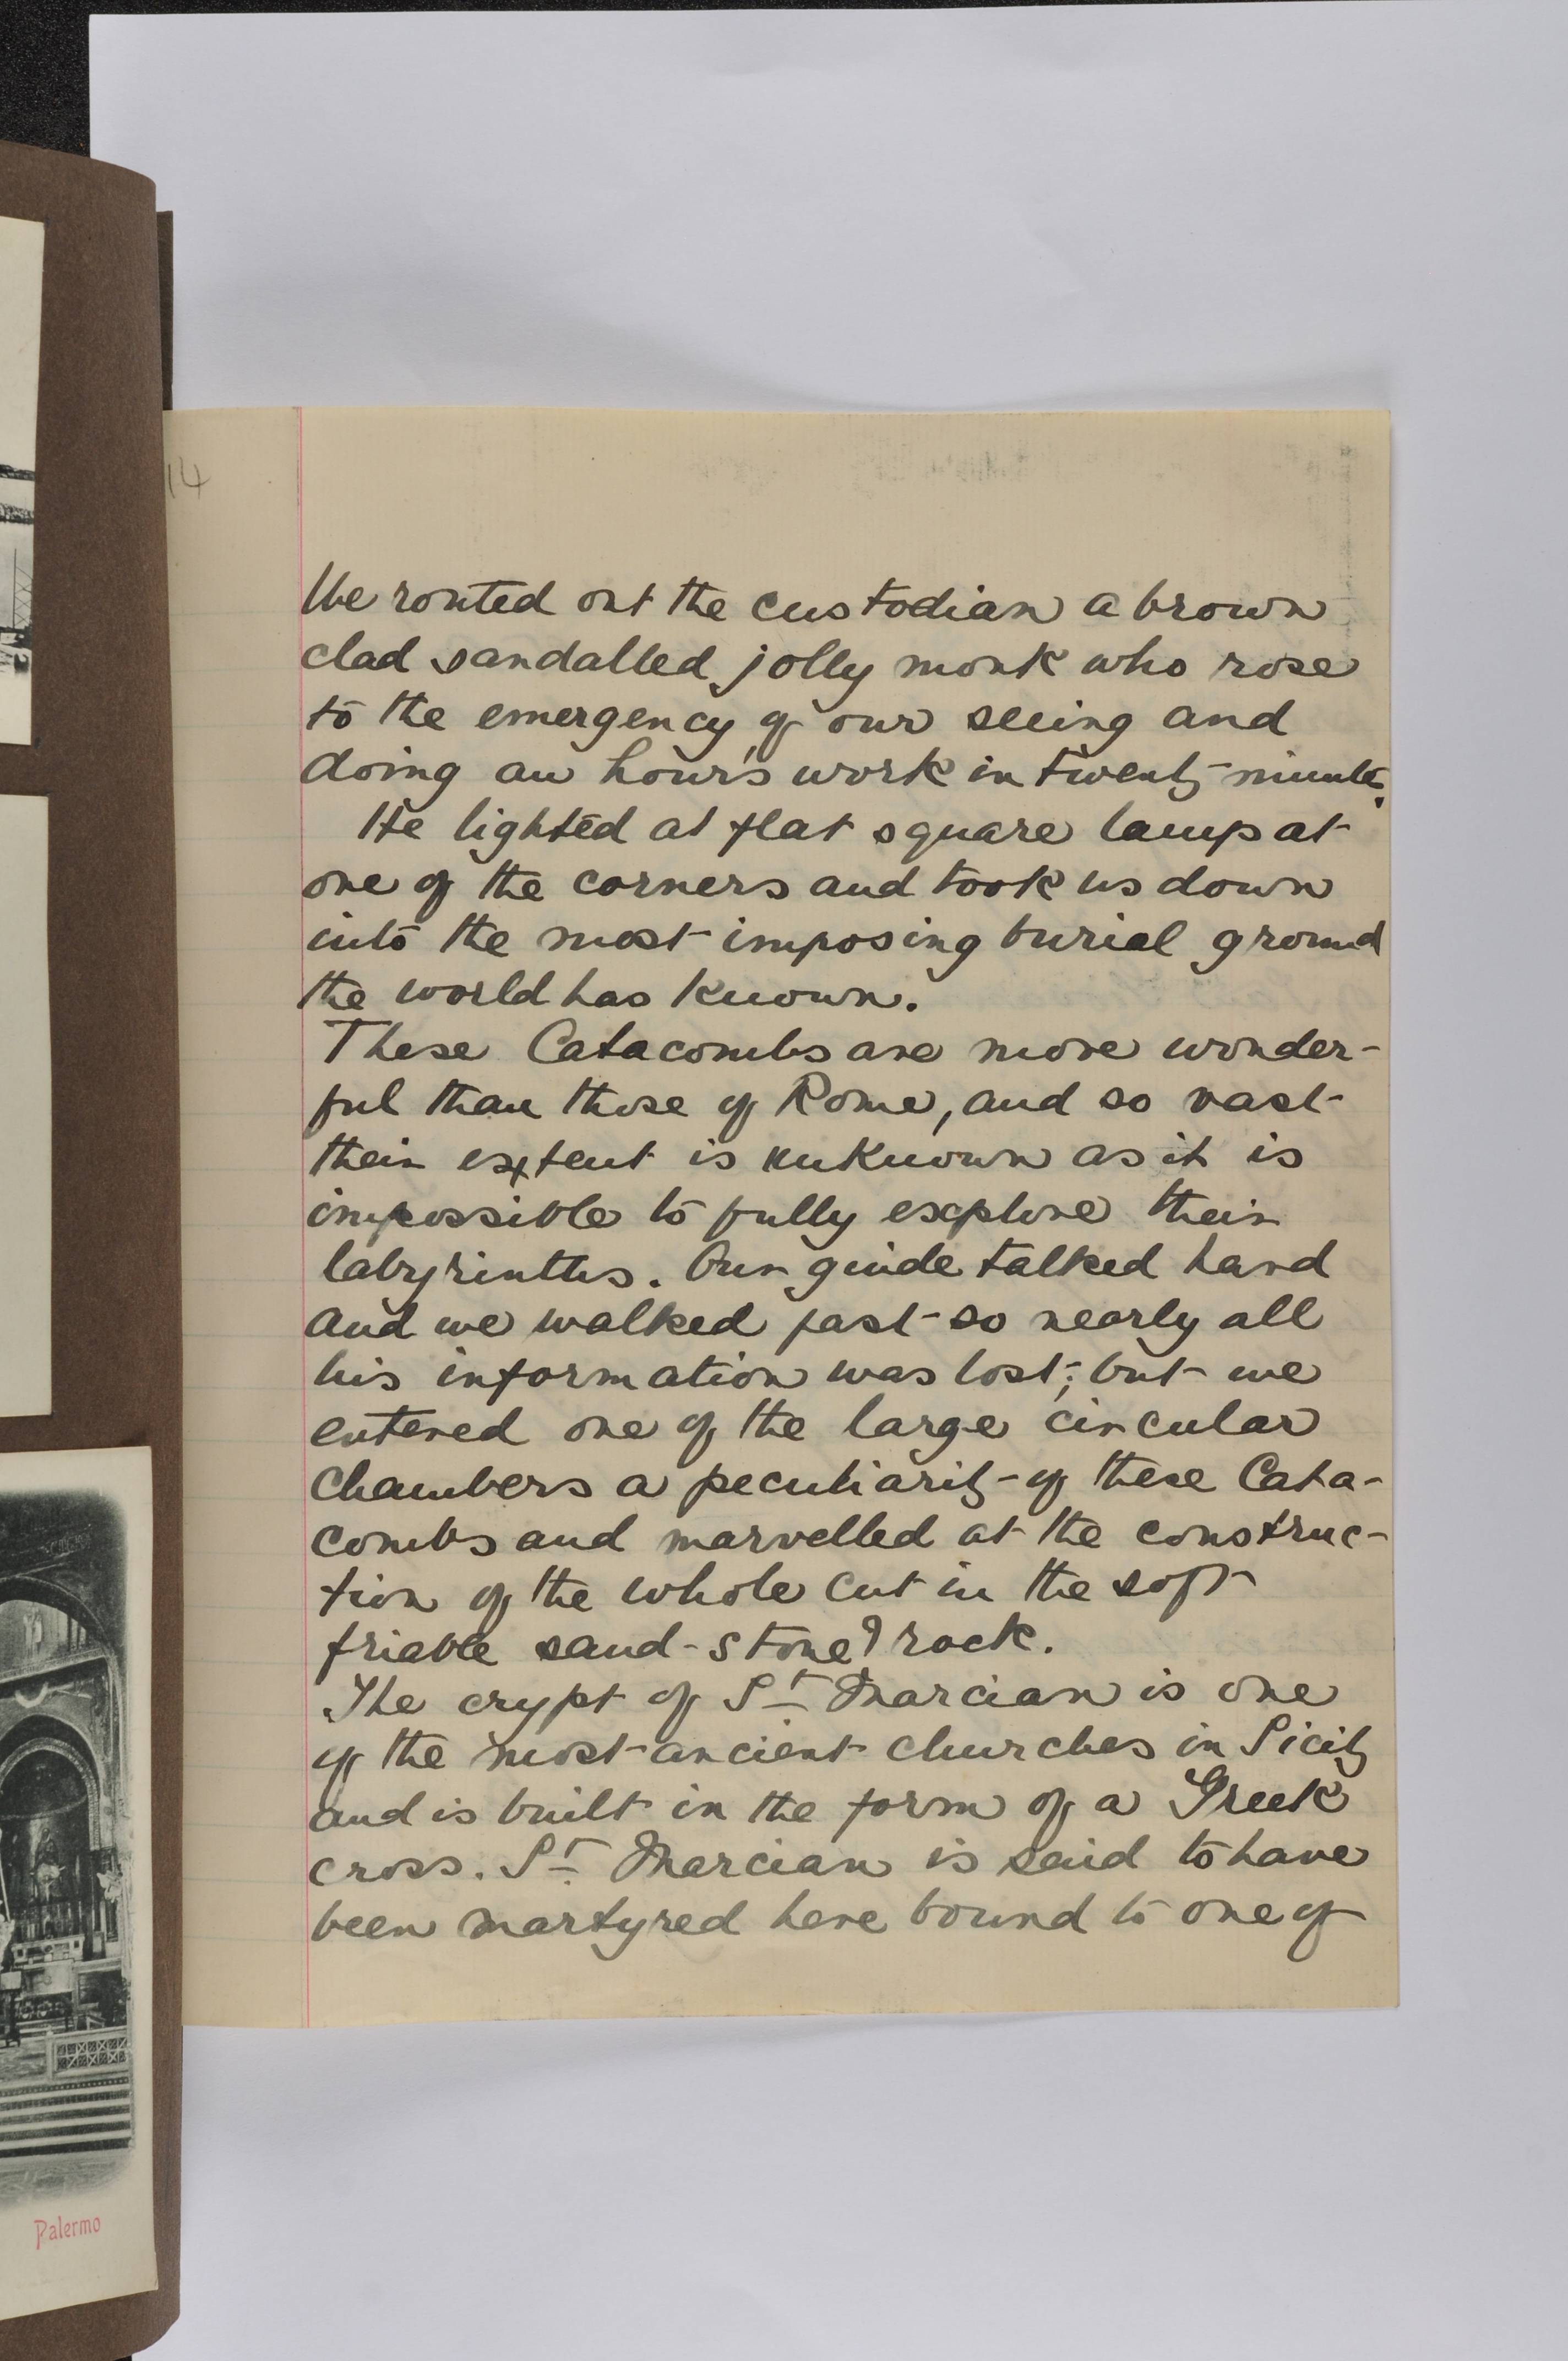 14
We routed out the custodian a brown
clad sandalled jolly monk who rose
to the emergency of our seeing and
doing an hour's work in twenty minutes.
He lighted at flat square lamp at
one of the corners and took us down
into the most imposing burial ground
the world has known.
These Catacombs are more wonder-
ful than those of Rome, and so vast
their extent is unknown as it is
impossible to fully explore their
labyrinths. Our guide talked hard
and we walked fast so nearly all
his information was lost; but we
entered one of the large circular
chambers a peculiarity of these Cata-
combs and marvelled at the construc-
tion of the whole cut in the soft
friable sand-stone? rock.
The crypt of St Marcian is one
of the most ancient churches in Sicily
and is built in the form of a Greek
cross. St Marcian is said to have
been martyred here bound to one of
Palermo